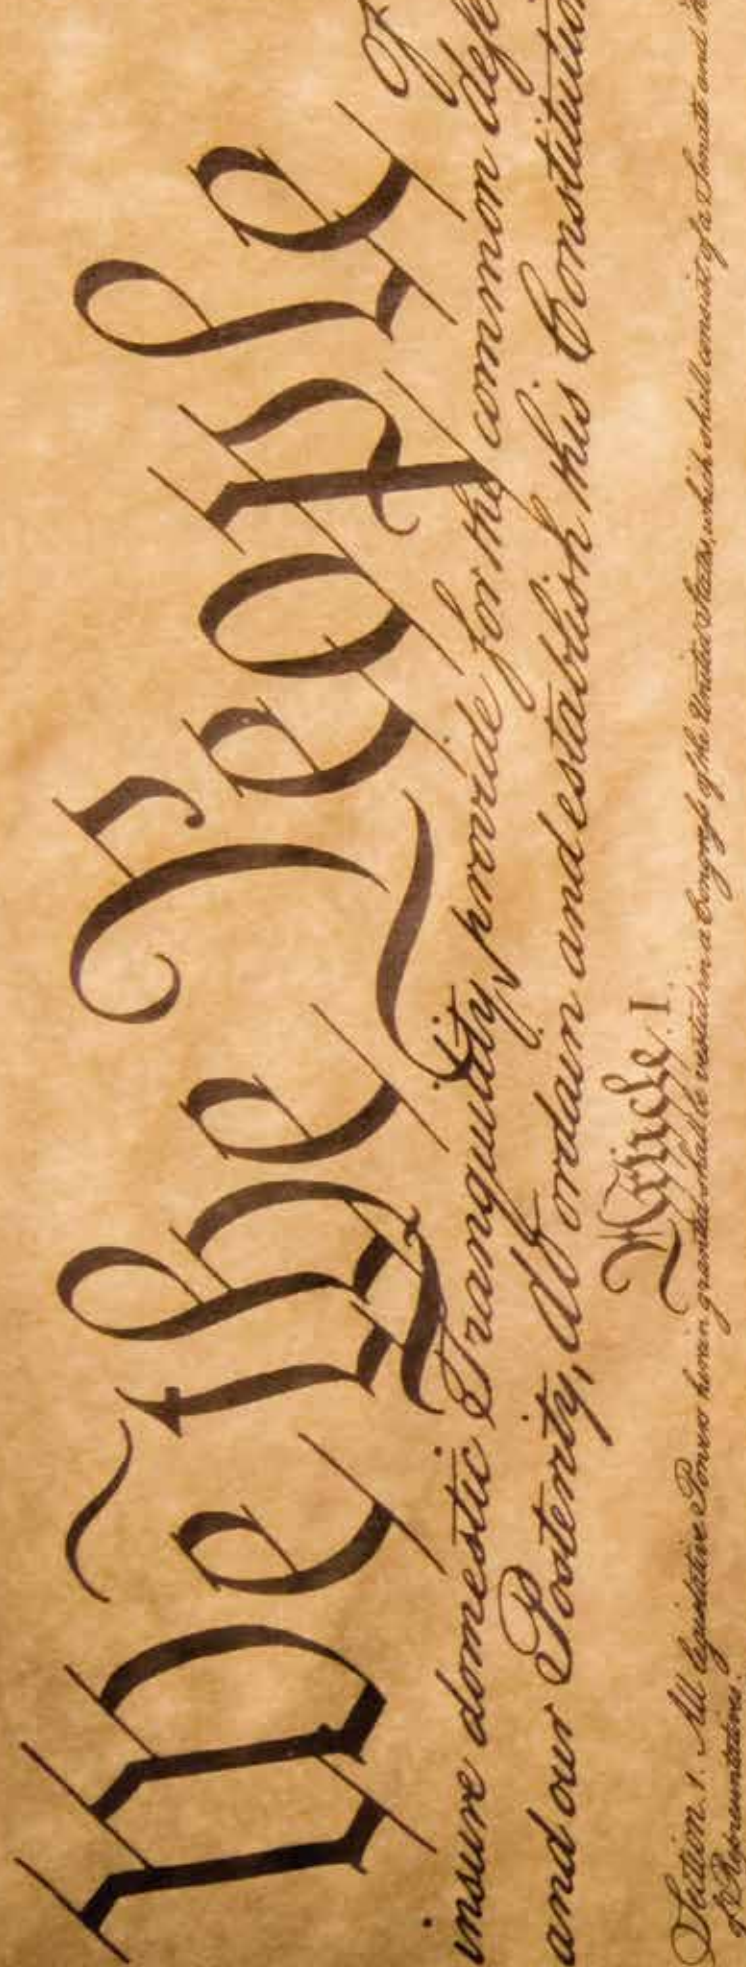 We the People
insure domestic Tranquility, provide for the common
and our Posterity, do ordain and establish this Constitution
Article. I.
Section. 1. All legislative Powers herein granted shall be vested in a Congress of the United States, which shall consist of a Senate and
of Representatives.